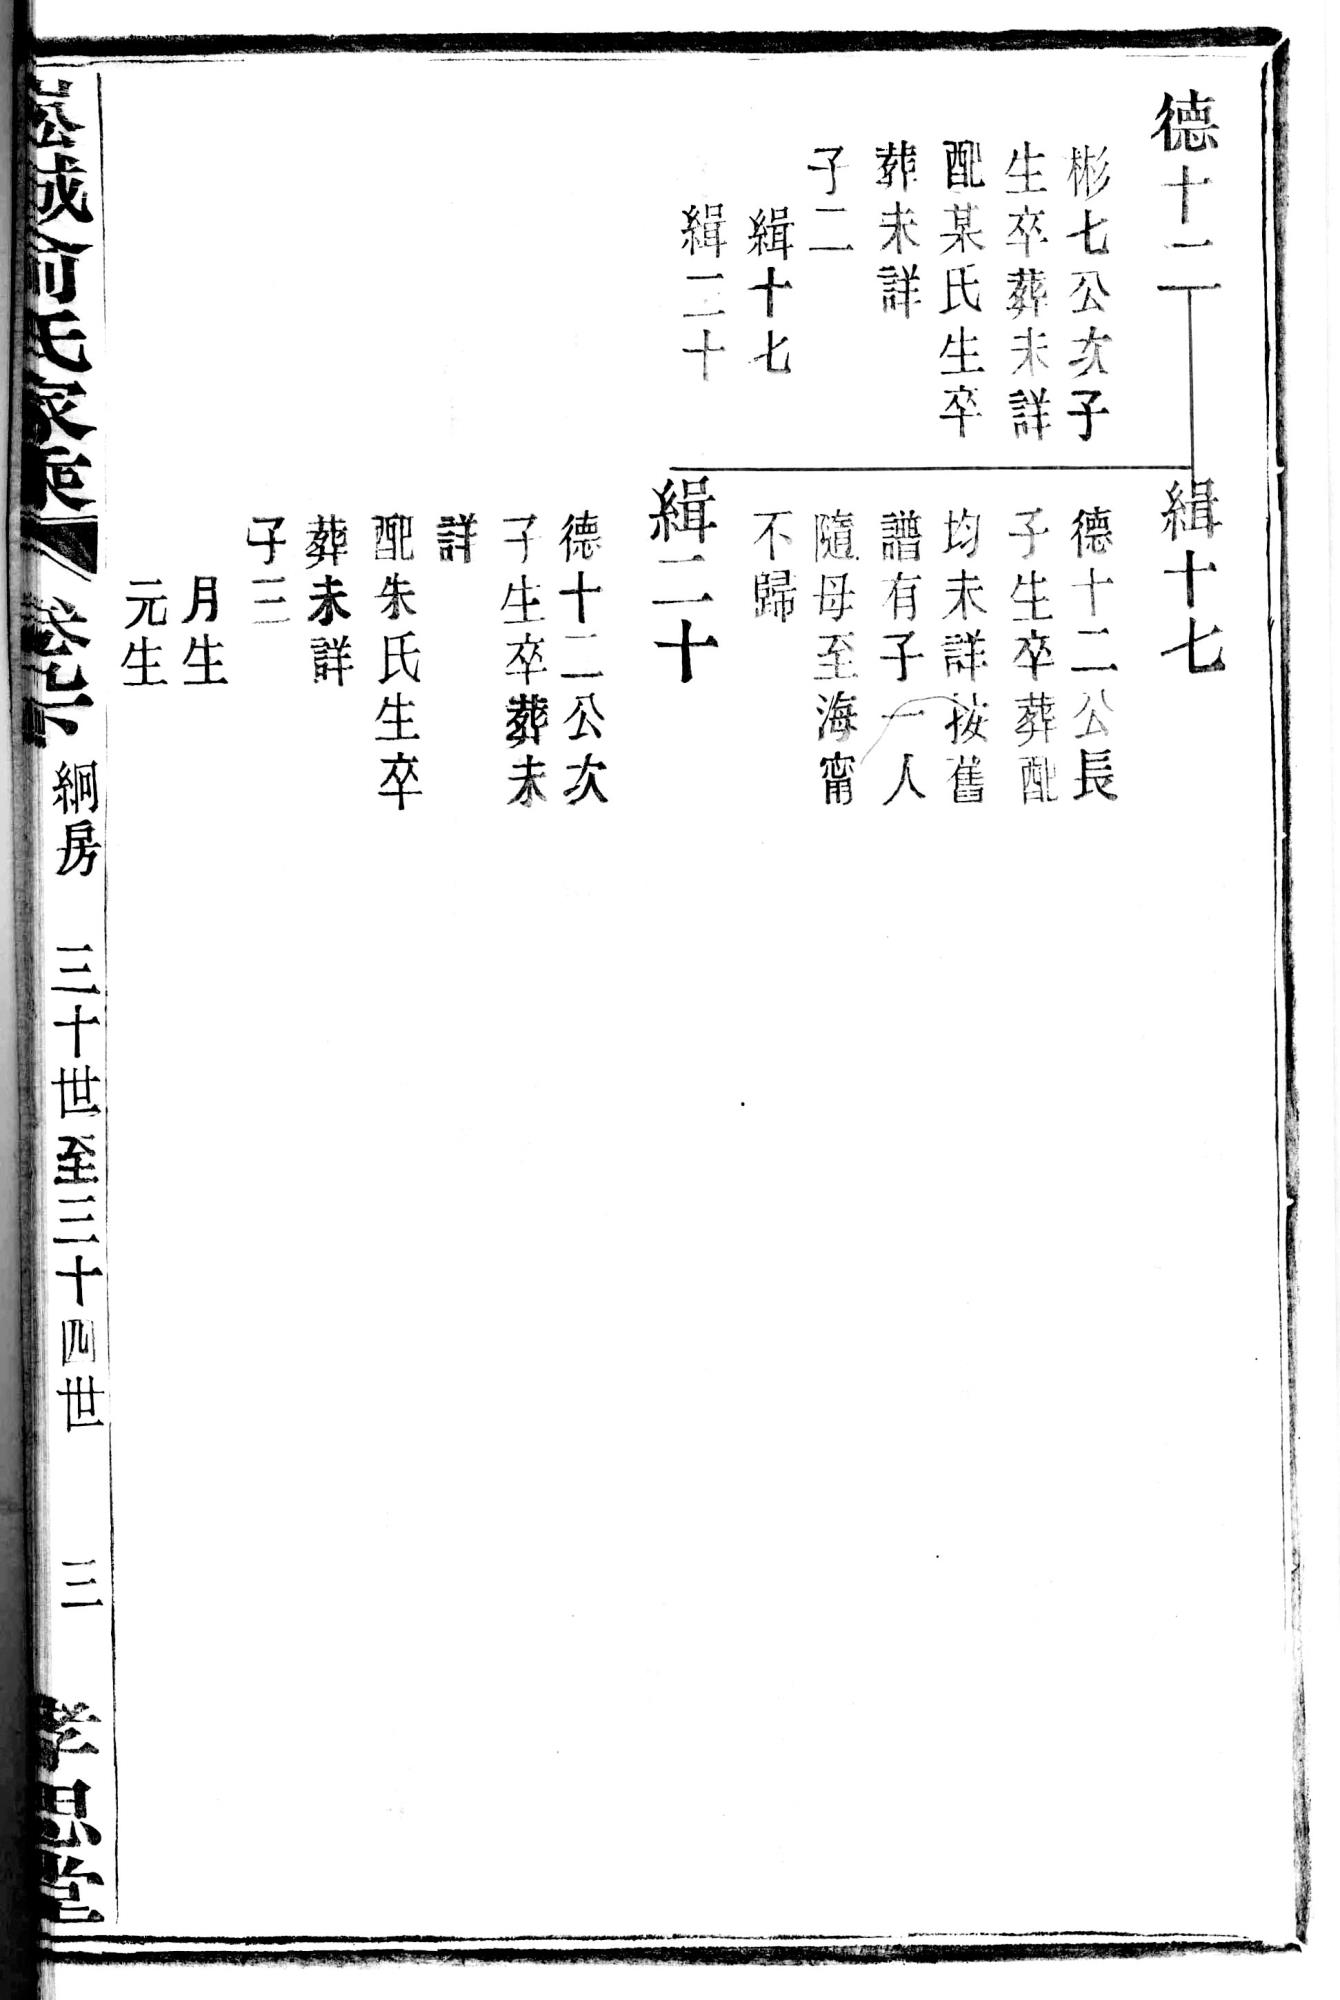 德十二
彬七公次子
生卒葬未詳
配某氏生卒
葬未詳
子二
緝十七
緝二十
緝十七
德十二公長
子生卒葬配
均未詳按舊
譜有子一人
隨母至海甯
不歸
緝二十
德十二公次
子生卒葬未
詳
配朱氏生卒
葬未詳
子二
月生
元生
崧城俞氏家乘
卷七下
絅房
三十世至三十四世
三
孝思堂